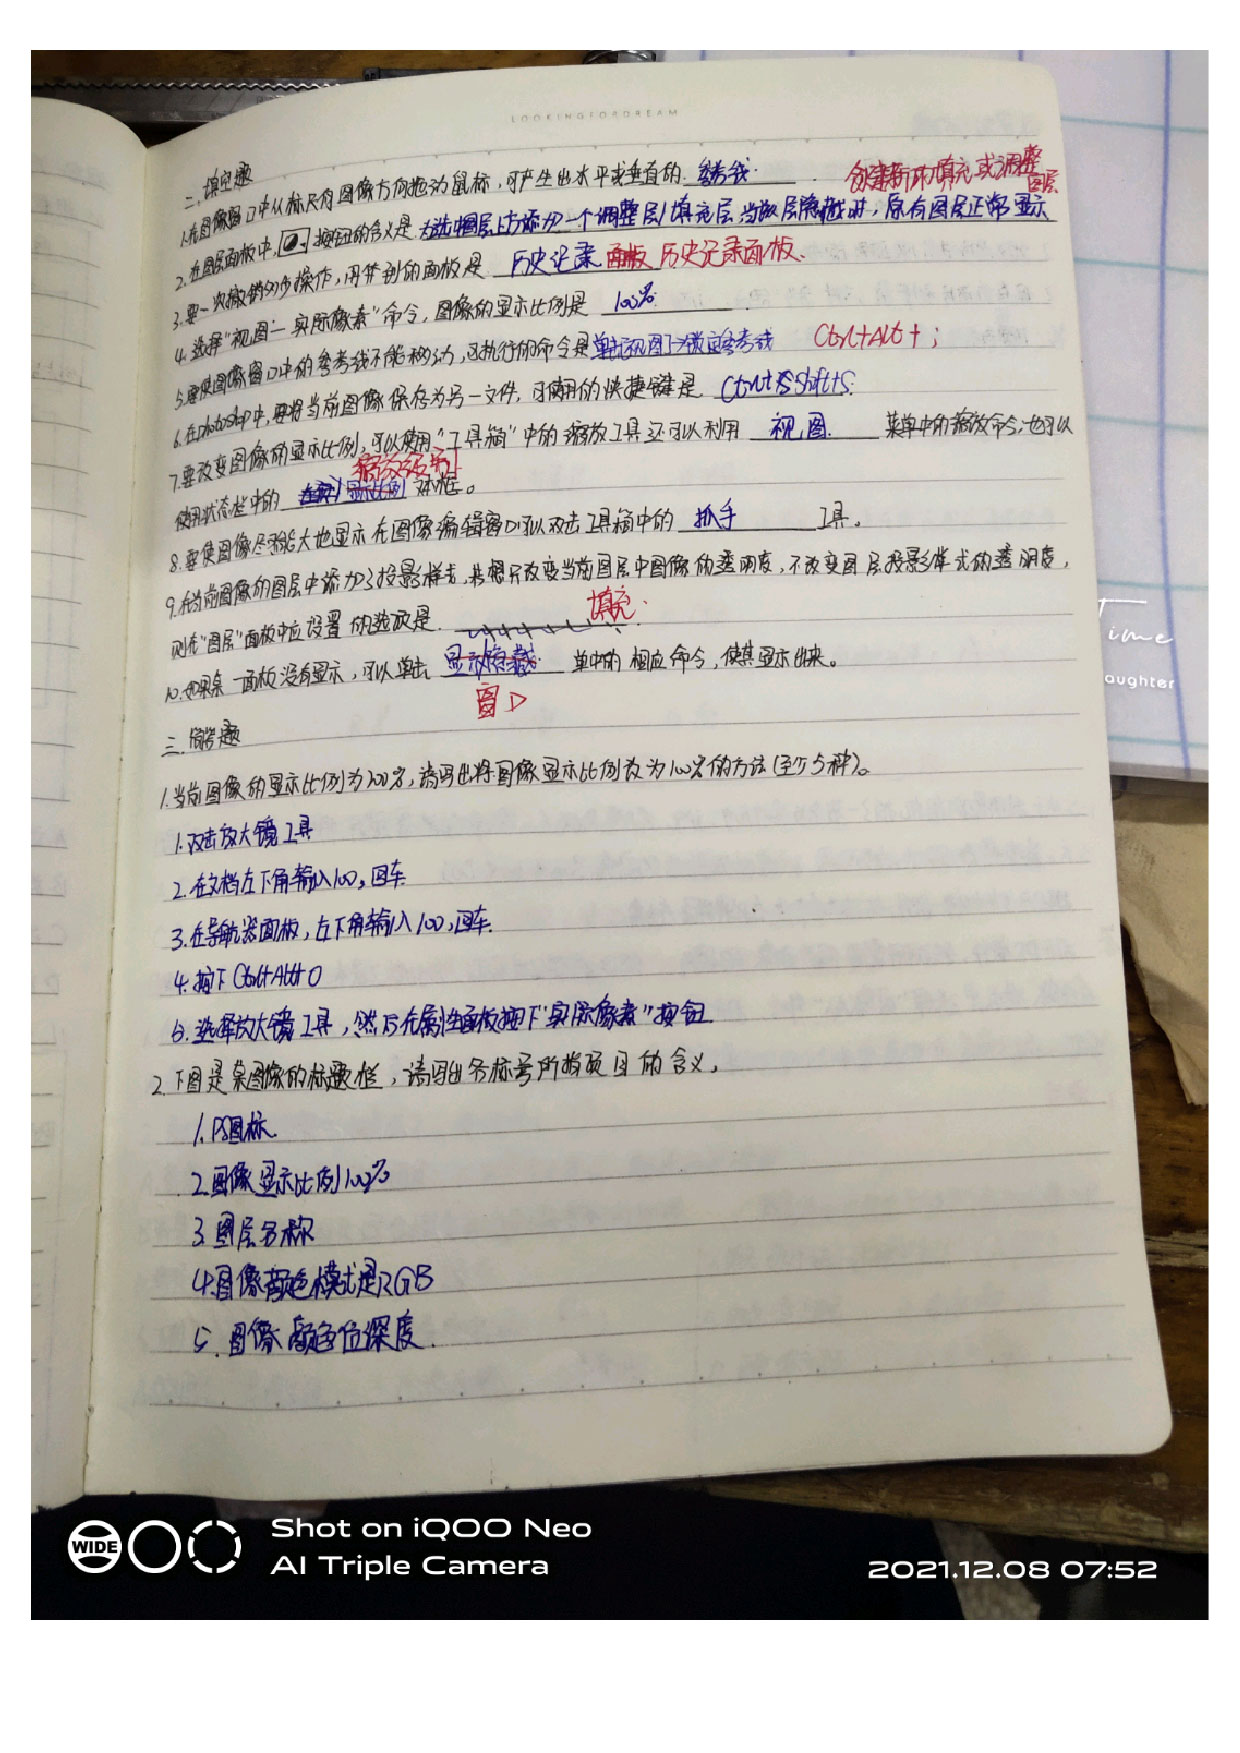 LOOKINGFORDREAM
二、填空题
1.在图像窗口中从标尺向图像方向拖动鼠标,可产生出水平或垂直的 参考线.
创建新的填充或调整图层
2.在图层面板中, 按钮的含义是 为选中图层上方添加一个调整层/填充层 当做层隐藏时,原有图层正常显示
3.要一次撤销多步操作,用到的面板是 历史记录 面板 历史记录面板.
4.选择"视图-实际像素"命令,图像的显示比例是 100%.
5.要使图像窗口中的参考线不能移动,可执行的命令是单击视图→锁定参考线 Ctrl+Alt+;
6.在Photoshop中,要将当前图像保存为另一文件,可使用的快捷键是 Ctrl+Shift+S.
7.要改变图像的显示比例,可以使用"工具箱"中的缩放工具还可以利用 视图 菜单中的缩放命令,也可以
使用状态栏中的 显示比例
8.要使图像尽可能大地显示在图像编辑窗口可以双击工具箱中的 抓手 工具。
9.在当前图像的图层中添加了投影样式,若想只改变当前图层中图像的透明度,不改变图层投影样式的透明度,
填充.
则在"图层"面板中应设置的选项是
10.如果某一面板没有显示,可以单击 显示隐藏 单中的相应命令,使其显示出来。
窗口
三.简答题
1.当前图像的显示比例为200%,请写出将图像显示比例改为100%的方法(至少5种)。
1.双击放大镜工具
2.在文档左下角输入100,回车
3.在导航器面板,左下角输入100,回车.
4.按下Ctrl+Alt+0
5.选择放大镜工具,然后在属性面板按下"实际像素"按钮
2.下图是某图像的标题栏,请写出各标号所指项目的含义,
1.PS图标
2.图像显示比例100%
3.图层名称
4.图像颜色模式是RGB
5.图像颜色位深度.
Time
aughter
WIDE
Shot on iQOO Neo
AI Triple Camera
2021.12.08 07:52